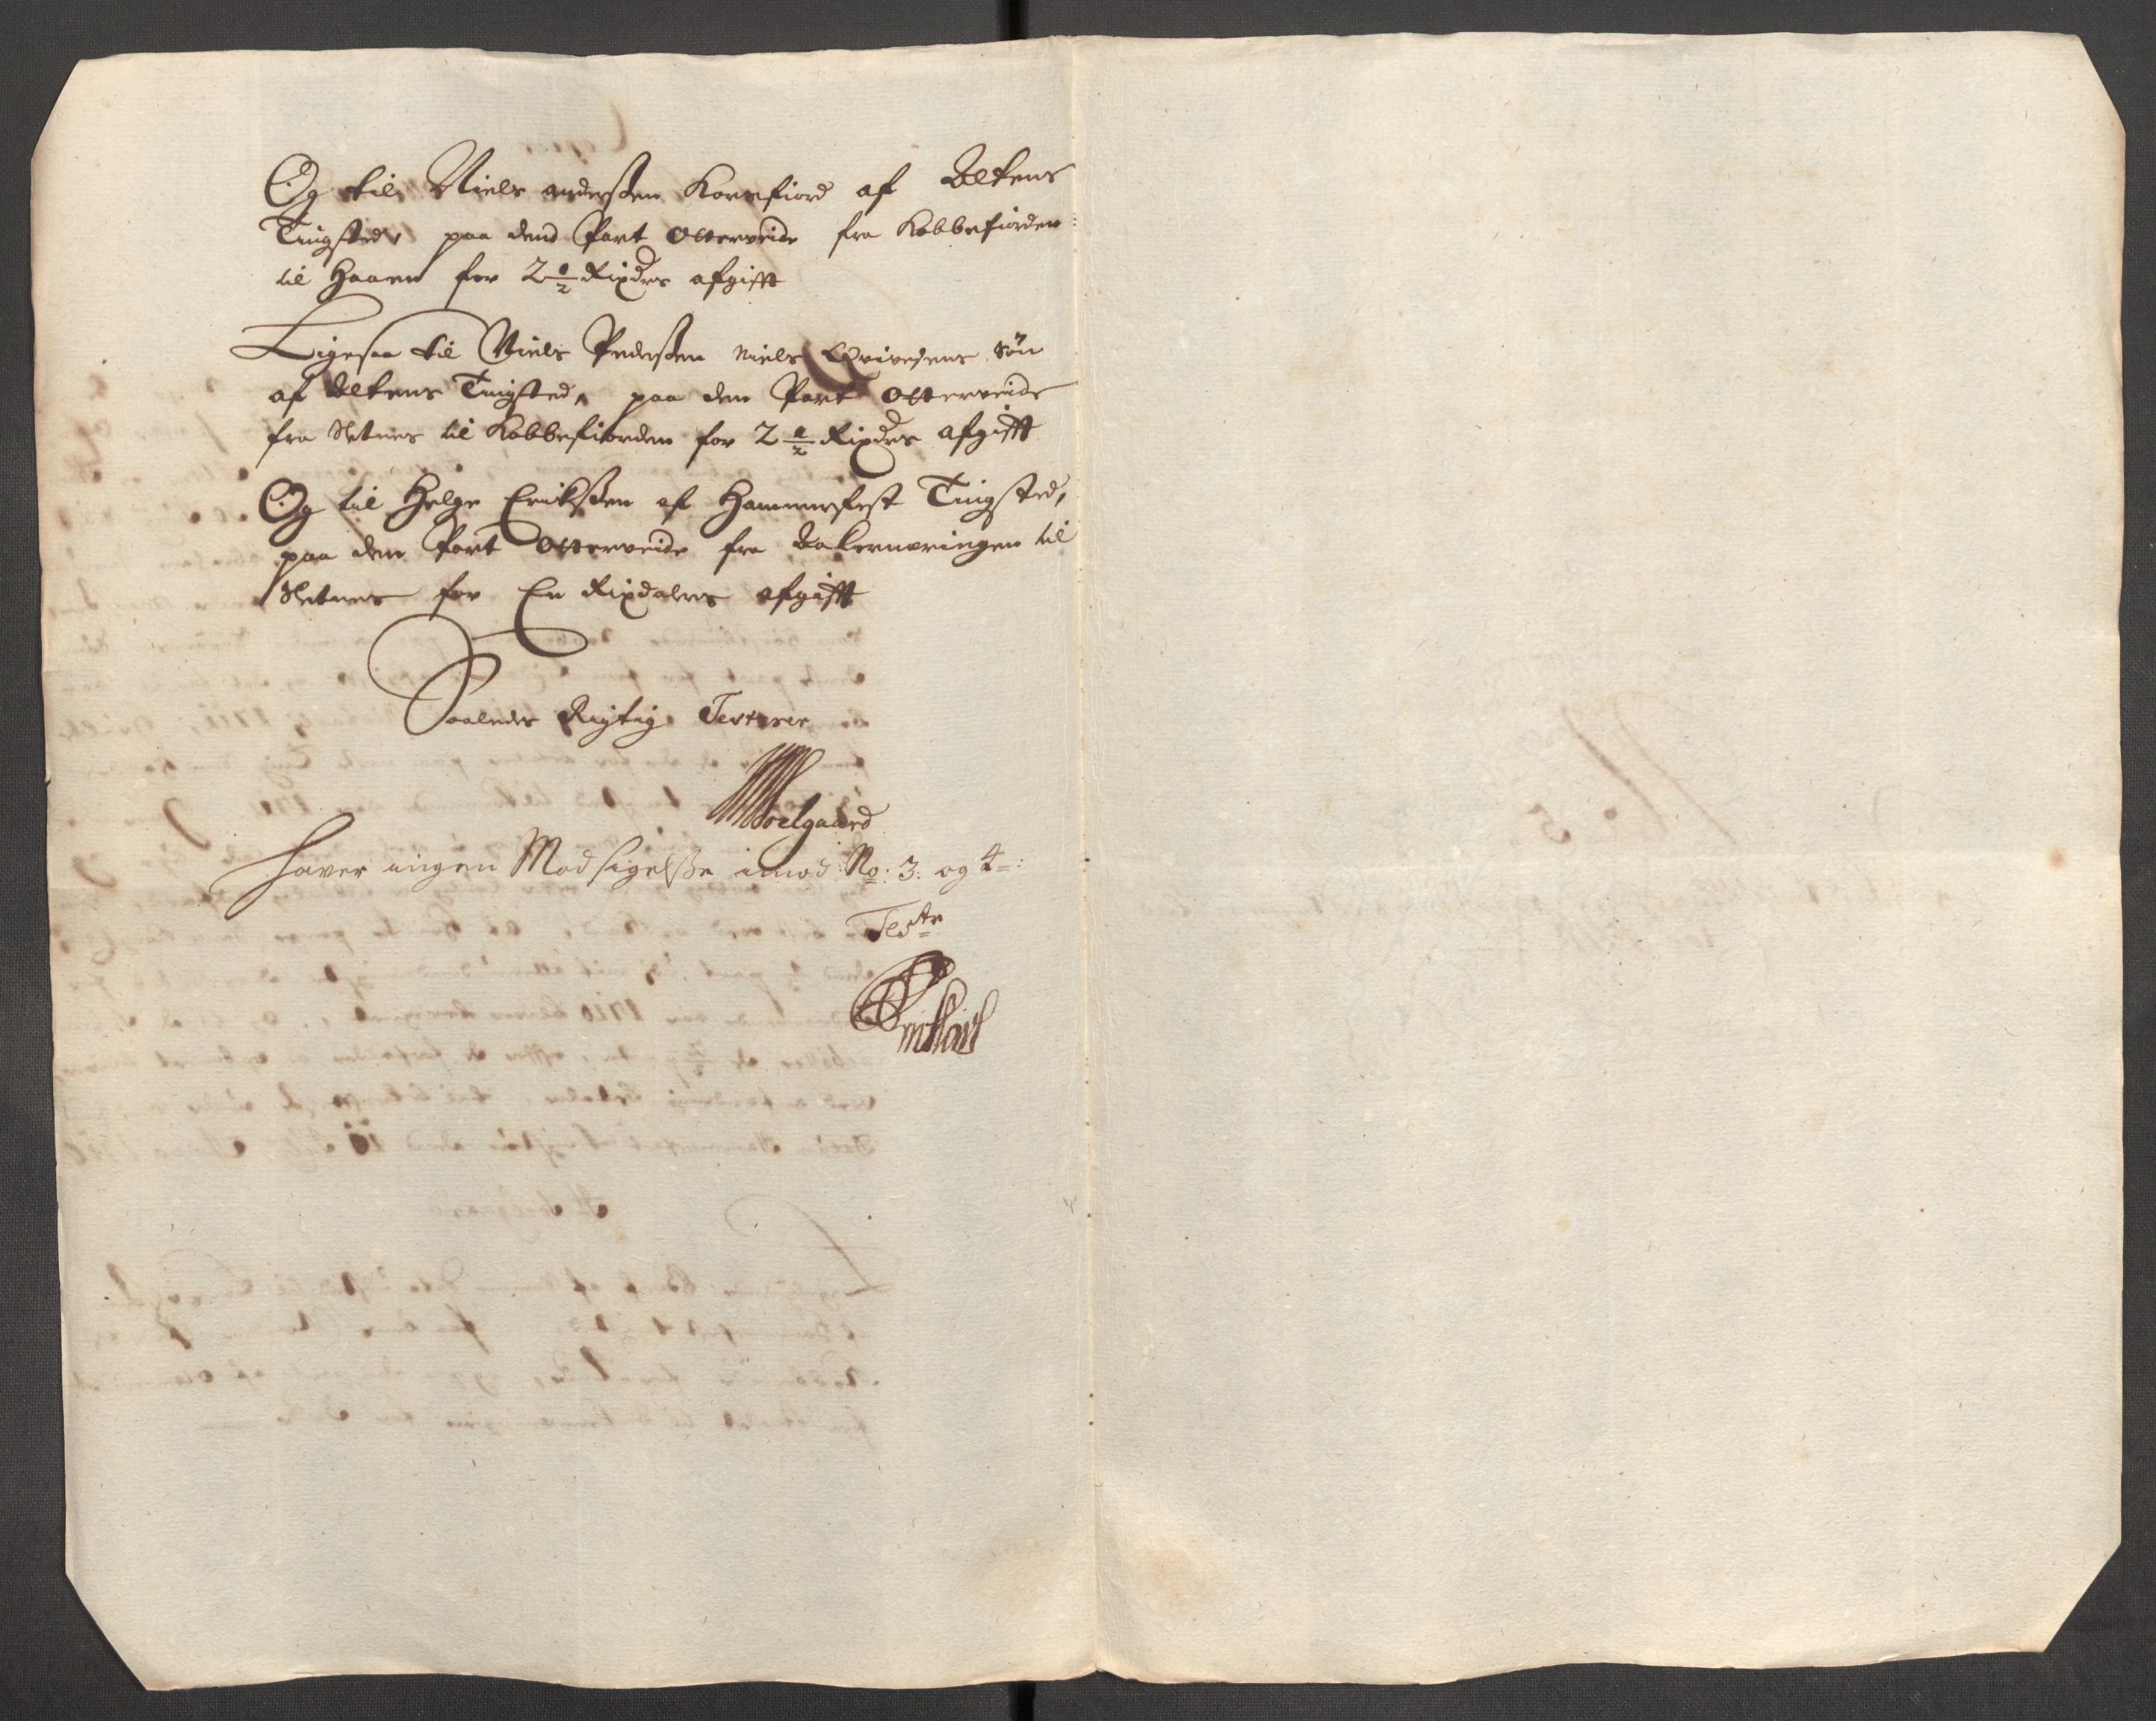 Og til Niels anderßen Korsfiord af Altens
Tingsted, paa dend Part Otterveide fra Kobbefiorden
til Haaen for 2 1/2 Rixdrs afgifft
Ligesaa til Niels Pederßen Niels Qvivesens Søn
af Altens Tingsted, paa den Part Otterveide
fra Sletnes til Kobbefiorden for 2 1/2 Rixdrs afgifft
Og til Helge Erikßen af Hammerfest Tingsted,
paa den Part Otterveide fra Bakernæringen til
Sletnes for En Rixdalers afgifft
Saaledes Rigtig Testerer
Soelgaard
Haver ingen Modsigelße imod No: 3: og 4=:
Test
No: 5